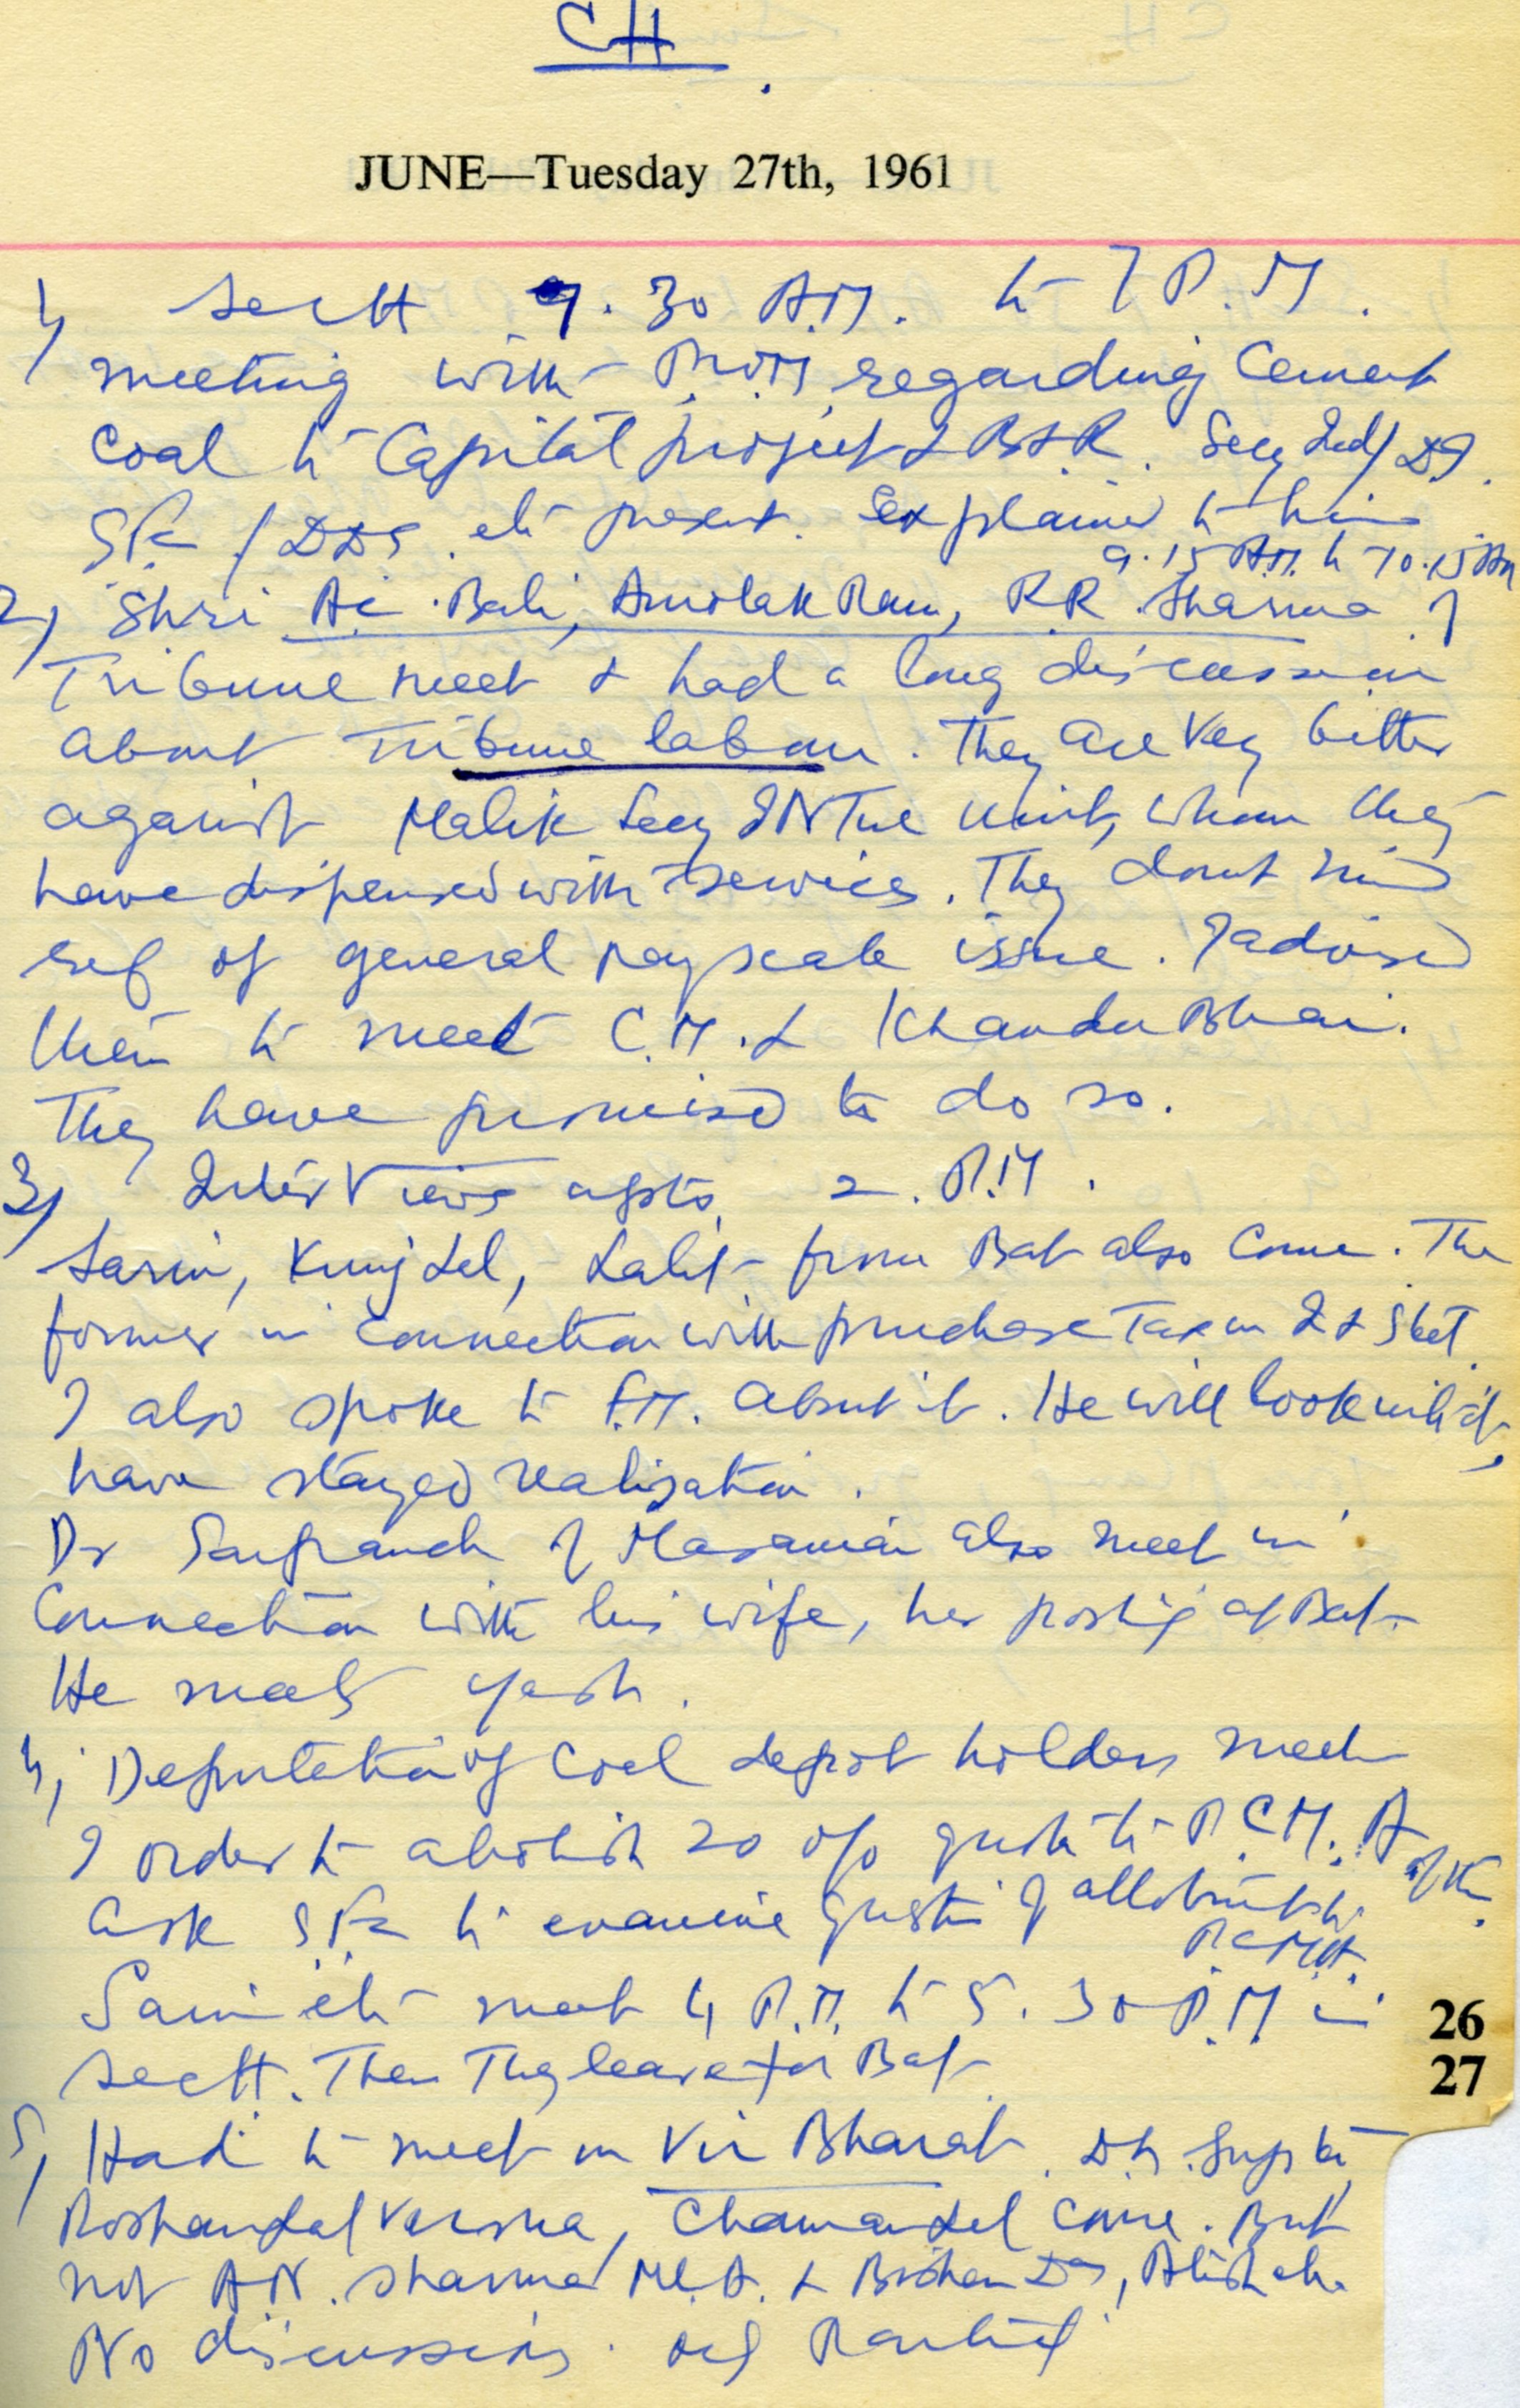 CH
JUNE—Tuesday 27th, 1961
1) Sectt 9.30 A.M. to 7 P.M.
meeting with regarding Cement
Coal to Capital project & B&R. Secy Ind/ D.I.
/ DDS. etc present. Explained to him
9.15 A.M. to 10.15 AM
2) Shri A.C. Bali, Amolak Ram, R.R. Sharma of
Tribune meet & had a long discussion
about Tribune labour. They are very bitter
against Malik Secy INTUC Unit, whom they
have dispensed with service. They dont mind
ref of general pay scale issue. I advised
them to meet C.M. & Khandu Bhai.
They have promised to do so.
3) Interviews upto 2. P.M.
Sarin, Kunj Lal, Lalit from Bat also come. The
former in connection with purchase Tax on I & Steel.
I also spoke to F.M. about it. He will look into it,
have stayed realization.
Dr of also meet in
Connection with his wife, her posting at Bat.
He meets Yash.
4) Deputation of Coal depot holders meet
I order to abolish 20 o/o quota to P.C.M.A.
ask to examine question of allotment to
P.C.M.A.
etc meet 4 P.M. to 5.30 P.M in
Sectt. Then They leave for Bat.
26
27
5) Had to meet in Vir Bharat. Gupta,
Roshan Lal Verma, Chaman Lal come. But
not A.N. Sharma M.L.A. & Bishan Das, etc.
No discussions.